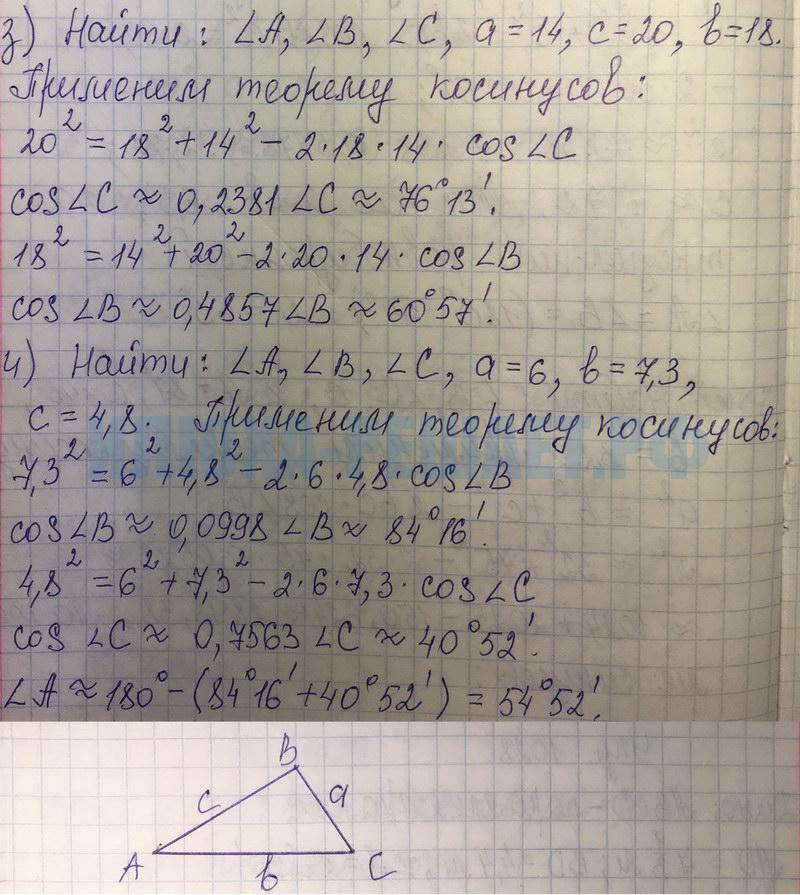 з) Найти: ∠A, ∠B, ∠C, a=14, c=20, b=18.
Применим теорему косинусов:
20² = 18² + 14² - 2·18·14· cos∠C
cos∠C ≈ 0,2381 ∠C ≈ 76°13'.
18² = 14² + 20² - 2·20·14· cos∠B
cos∠B ≈ 0,4857 ∠B ≈ 60°57'.
и) Найти: ∠A, ∠B, ∠C, a=6, b=7,3,
c=4,8. Применим теорему косинусов:
7,3² = 6² + 4,8² - 2·6·4,8· cos∠B
cos∠B ≈ 0,0998 ∠B ≈ 84°16'.
4,8² = 6² + 7,3² - 2·6·7,3· cos∠C
cos ∠C ≈ 0,7563 ∠C ≈ 40°52'.
∠A ≈ 180° - (84°16' + 40°52') = 54°52'.
B
c a
A b C